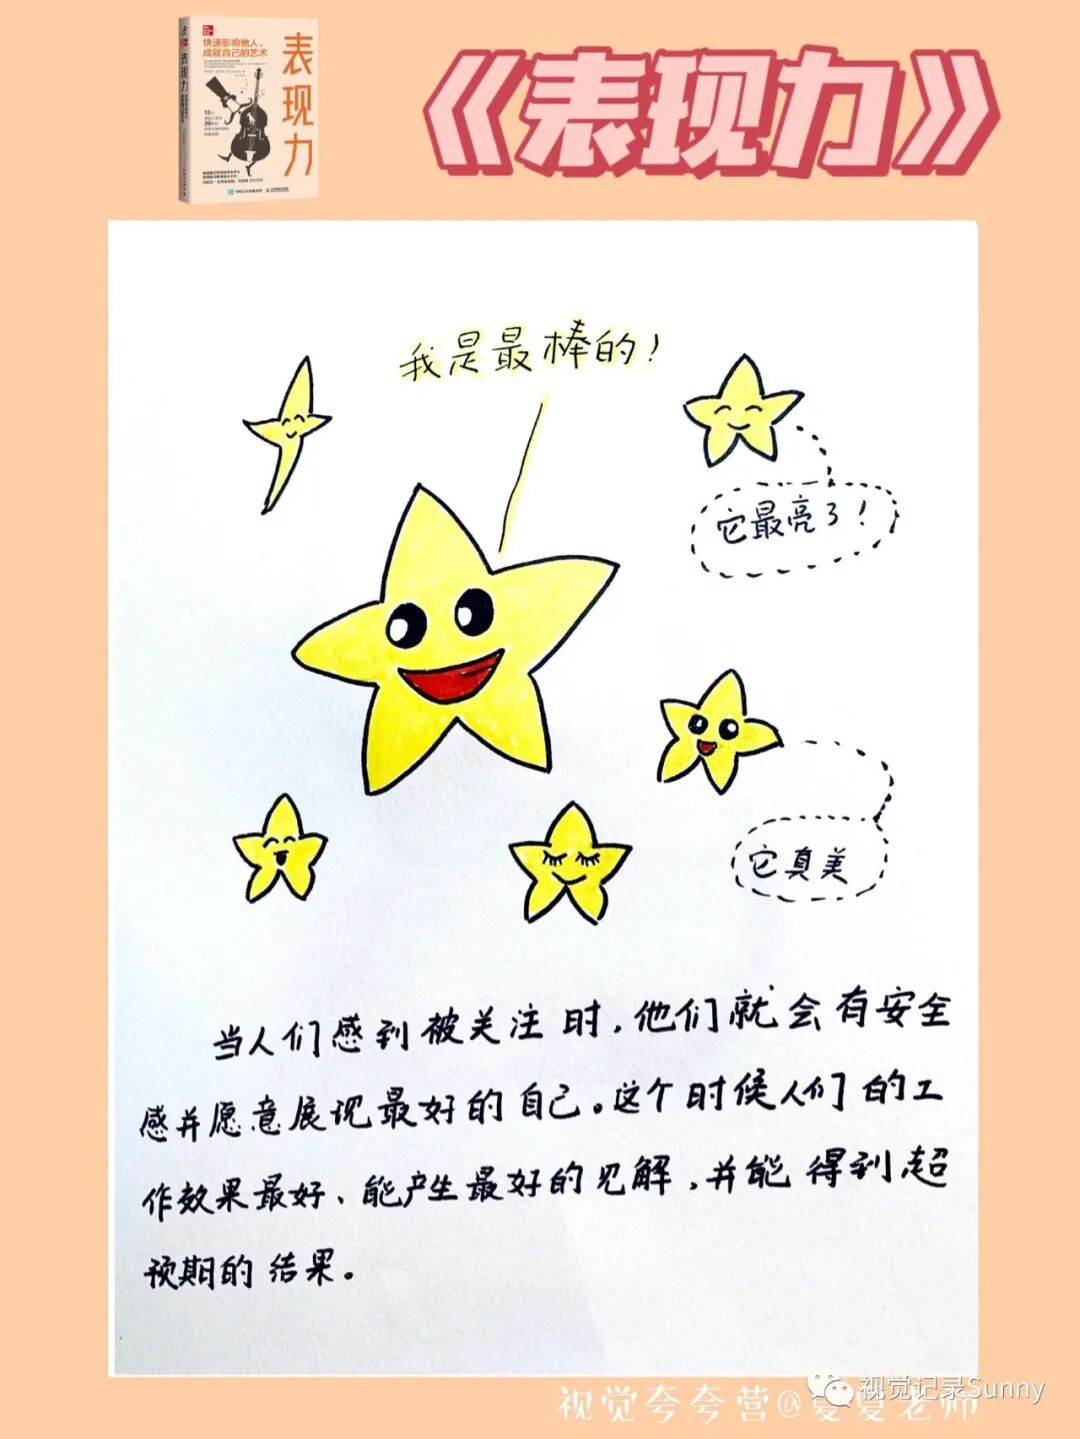 快速影响他人、
成就自己的艺术
表现力
表现力
13
20
《表现力》
我是最棒的！
它最亮了！
它真美
当人们感到被关注时，他们就会有安全
感并愿意展现最好的自己。这个时候人们的工
作效果最好、能产生最好的见解，并能得到超
预期的结果。
视觉记录Sunny
视觉夸夸营@夏夏老师